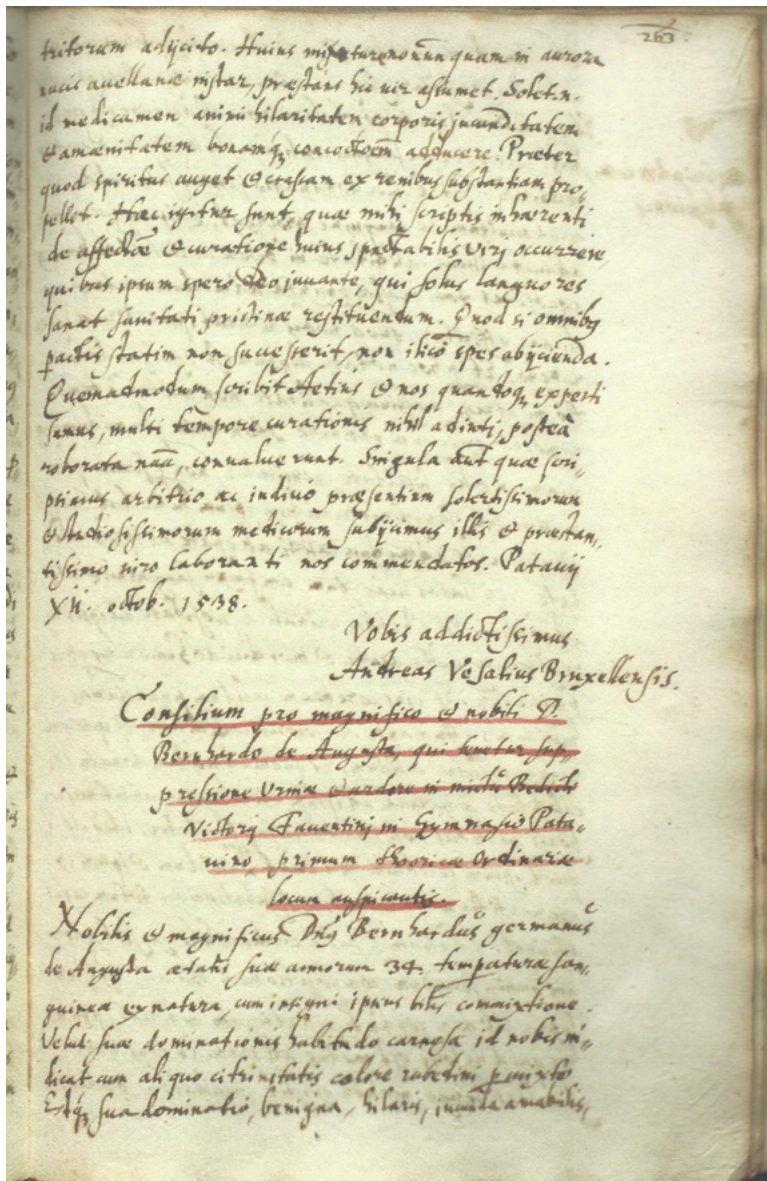 263
tritorum adijcito. Huius misturae nonnunquam in aurora
nucis avellanae instar, praestans hic vir assumet. Solet .n.
id medicamen animi hilaritatem corporis jucunditatem
& amaenitatem bonamq; concoctoēm adducere. Praeter
quod spiritus auget & crassam ex renibus substantiam pro„
pellet. Haec igitur sunt, quae mihi scriptis inhaerenti
de affectōe & curatione huius spectabilis virj occurrere
quibus ipsum spero deo juvante, qui solus languores
sanat sanitati pristinae restituendum. Quod si omnibq
pactis statim non successerit, non ilicò spes abijcienda.
Quemadmodum scribit Aetius & nos quandoq; experti
sumus, multi tempore curationis nihil adiuti, posteà
roborata naā, convaluerunt. Singula aūt quae scri„
psimus arbitrio ac iudicio praesentium solertissimorum
& studiosissimorum medicorum subijcimus illis & praestan„
tissimo viro laboranti nos commendatos. Patavij
XII. octob. 1538.
Vobis addictissimus
Andreas Vesalius Bruxellensis.
Consilium pro magnifico & nobili D.
Bernhardo de Augusta, qui tenetur sup„
pressione Urinae & ardore in mictū Bedicti
Victorij Faventinj in Gymnasio Pata„
vino, primum theoricae ordinariae
locum auspicantis.
Nobilis & magnificus Dnq Bernhardus germanus
de Augusta aetatis suae annorum 34. temperaturae san„
guineae ex natura, cum insigni ipsius bilis commixtione.
Velut suae dominationis habitudo carnosa id nobis in„
dicat cum aliquo citrinitatis colore rubedini pmixto
Estq; sua dominatio, benigna, hilaris, jucunda amabilis,